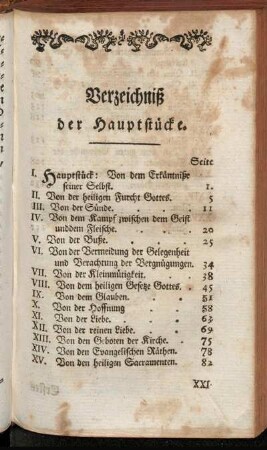 Verzeichniß
der Hauptstücke.
Seite
I. Hauptstück: Von dem Erkäntniße
seiner Selbst. . . . 1.
II. Von der heiligen Furcht Gottes. . 5
III. Von der Sünde. . . . 11
IV. Von dem Kampf zwischen dem Geist
unddem Fleische. . . . 20
V. Von der Buße. . . . 25
VI. Von der Vermeidung der Gelegenheit
und Verachtung der Vergnügungen. 34
VII. Von der Kleinmütigkeit. . . 38
VIII. Von dem heiligen Gesetze Gottes. . 45
IX. Von dem Glauben. . . 51
X. Von der Hoffnung . . 58
XI. Von der Liebe. . . . 63
XII. Von der reinen Liebe. . . 69
XIII. Von den Geboten der Kirche. . 75
XIV. Von den Evangelischen Räthen. . 78
XV. Von den heiligen Sacramenten. . 82
XXI.